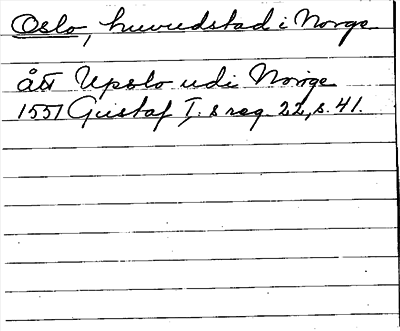 Oslo, huvudstad i Norge
ått Upslo udi Norige
1551 Gustaf I:s reg. 22, s. 41.